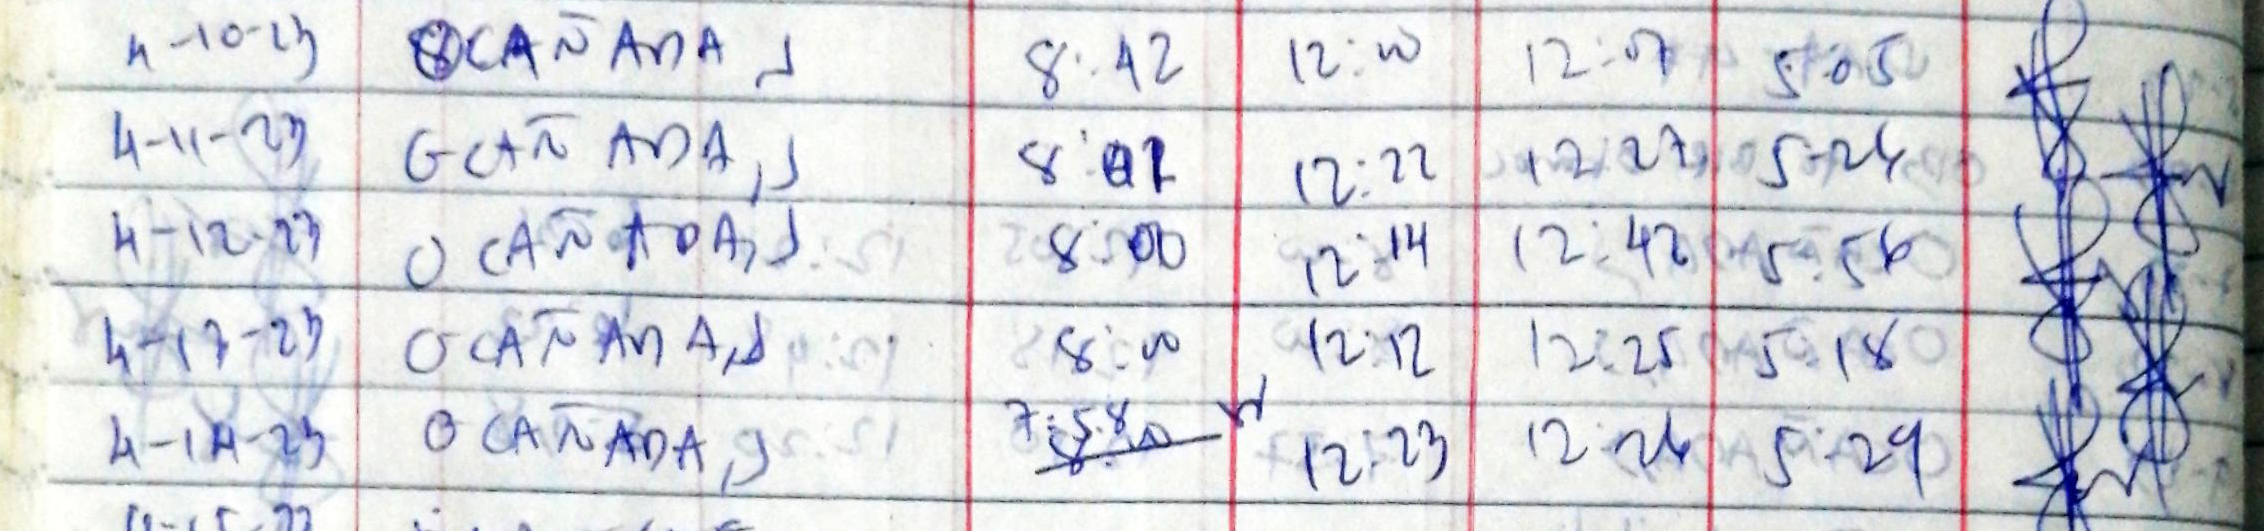 4-10-23 OCAÑADA, J 8:42 12:00 12:07 5:05
4-11-23 OCAÑADA, J 8:02 12:22 12:27 5:24
4-12-23 OCAÑADA, J 8:00 12:14 12:42 5:56
4-13-23 OCAÑADA, J 8:00 12:12 12:25 5:18
4-14-23 OCAÑADA, J 7:58 12:23 12:26 5:29